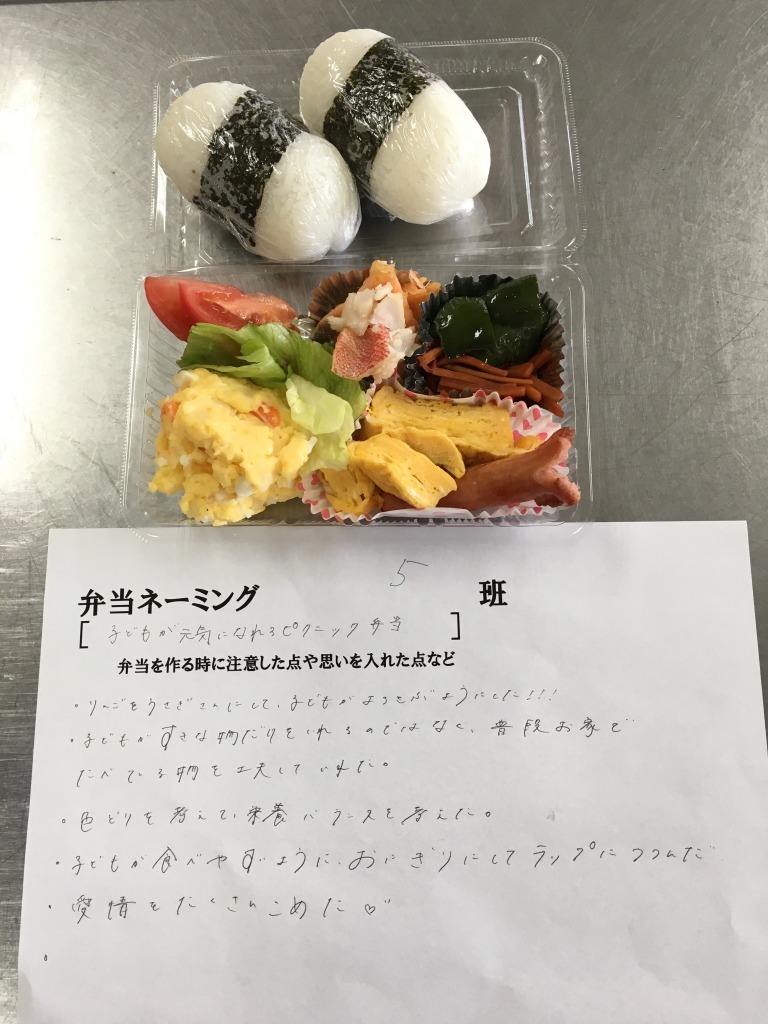 5
弁当ネーミング 班
[子どもが元気になれるピクニック弁当]
弁当を作る時に注意した点や思いを入れた点など
・りんごをうさぎさんにして、子どもがよろこぶようにした!!!
・子どもがすきな物だけをいれるのではなく、普段お家で
たべている物を工夫していれた。
・色どりを考えて、栄養バランスを考えた。
・子どもが食べやすいように、おにぎりにしてラップにつつんだ
・愛情をたくさんこめた♡